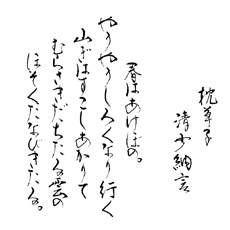 枕草子
清少納言
春はあけぼの。
やうやうしろくなり行く
山ぎはすこしあかりて
むらさきだちたる雲の
ほそくたなびきたる。